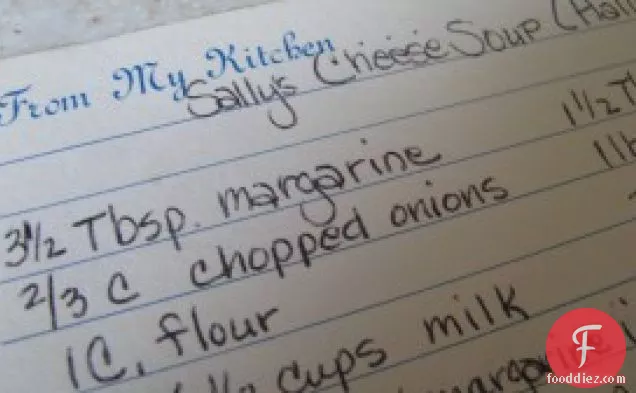 From My Kitchen
Sally's Cheese Soup (Hal
3 1/2 Tbsp. margarine 1 1/2 T
2/3 C chopped onions 1 lb
1 C. flour
1/2 cups milk
margarine
F
fooddiez.com